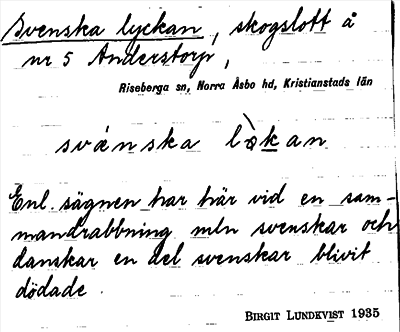 Svenska lyckan, skogslott å
nr 5 Anderstorp,
Riseberga sn, Norra Åsbo hd, Kristianstads län
svánska lə̀kan
Enl. sägnen har här vid en sam-
mandrabbning mln svenskar och
danskar en del svenskar blivit
dödade.
BIRGIT LUNDKVIST 1935